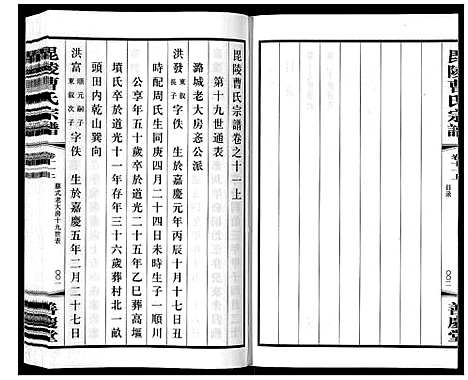 毘陵曹氏宗譜
卷十一上
目录
〇〇二
善慶堂
毘陵曹氏宗譜卷之十一上
第十九世通表
潞城老大房忞公派
洪發 東叙長子 字佚 生於嘉慶元年丙辰十月十七日丑
時配周氏生同庚四月二十四日未時生子一順川
公享年五十歲卒於道光二十五年乙巳葬高堰
墳氏卒於道光十一年存年三十六歲葬村北一畝
頭田内乾山巽向
洪富 順元嗣子 東叙次子 字佚 生於嘉慶五年二月二十七日
毘陵曹氏宗譜
卷十一上
老大房十九世表
〇〇一
善慶堂